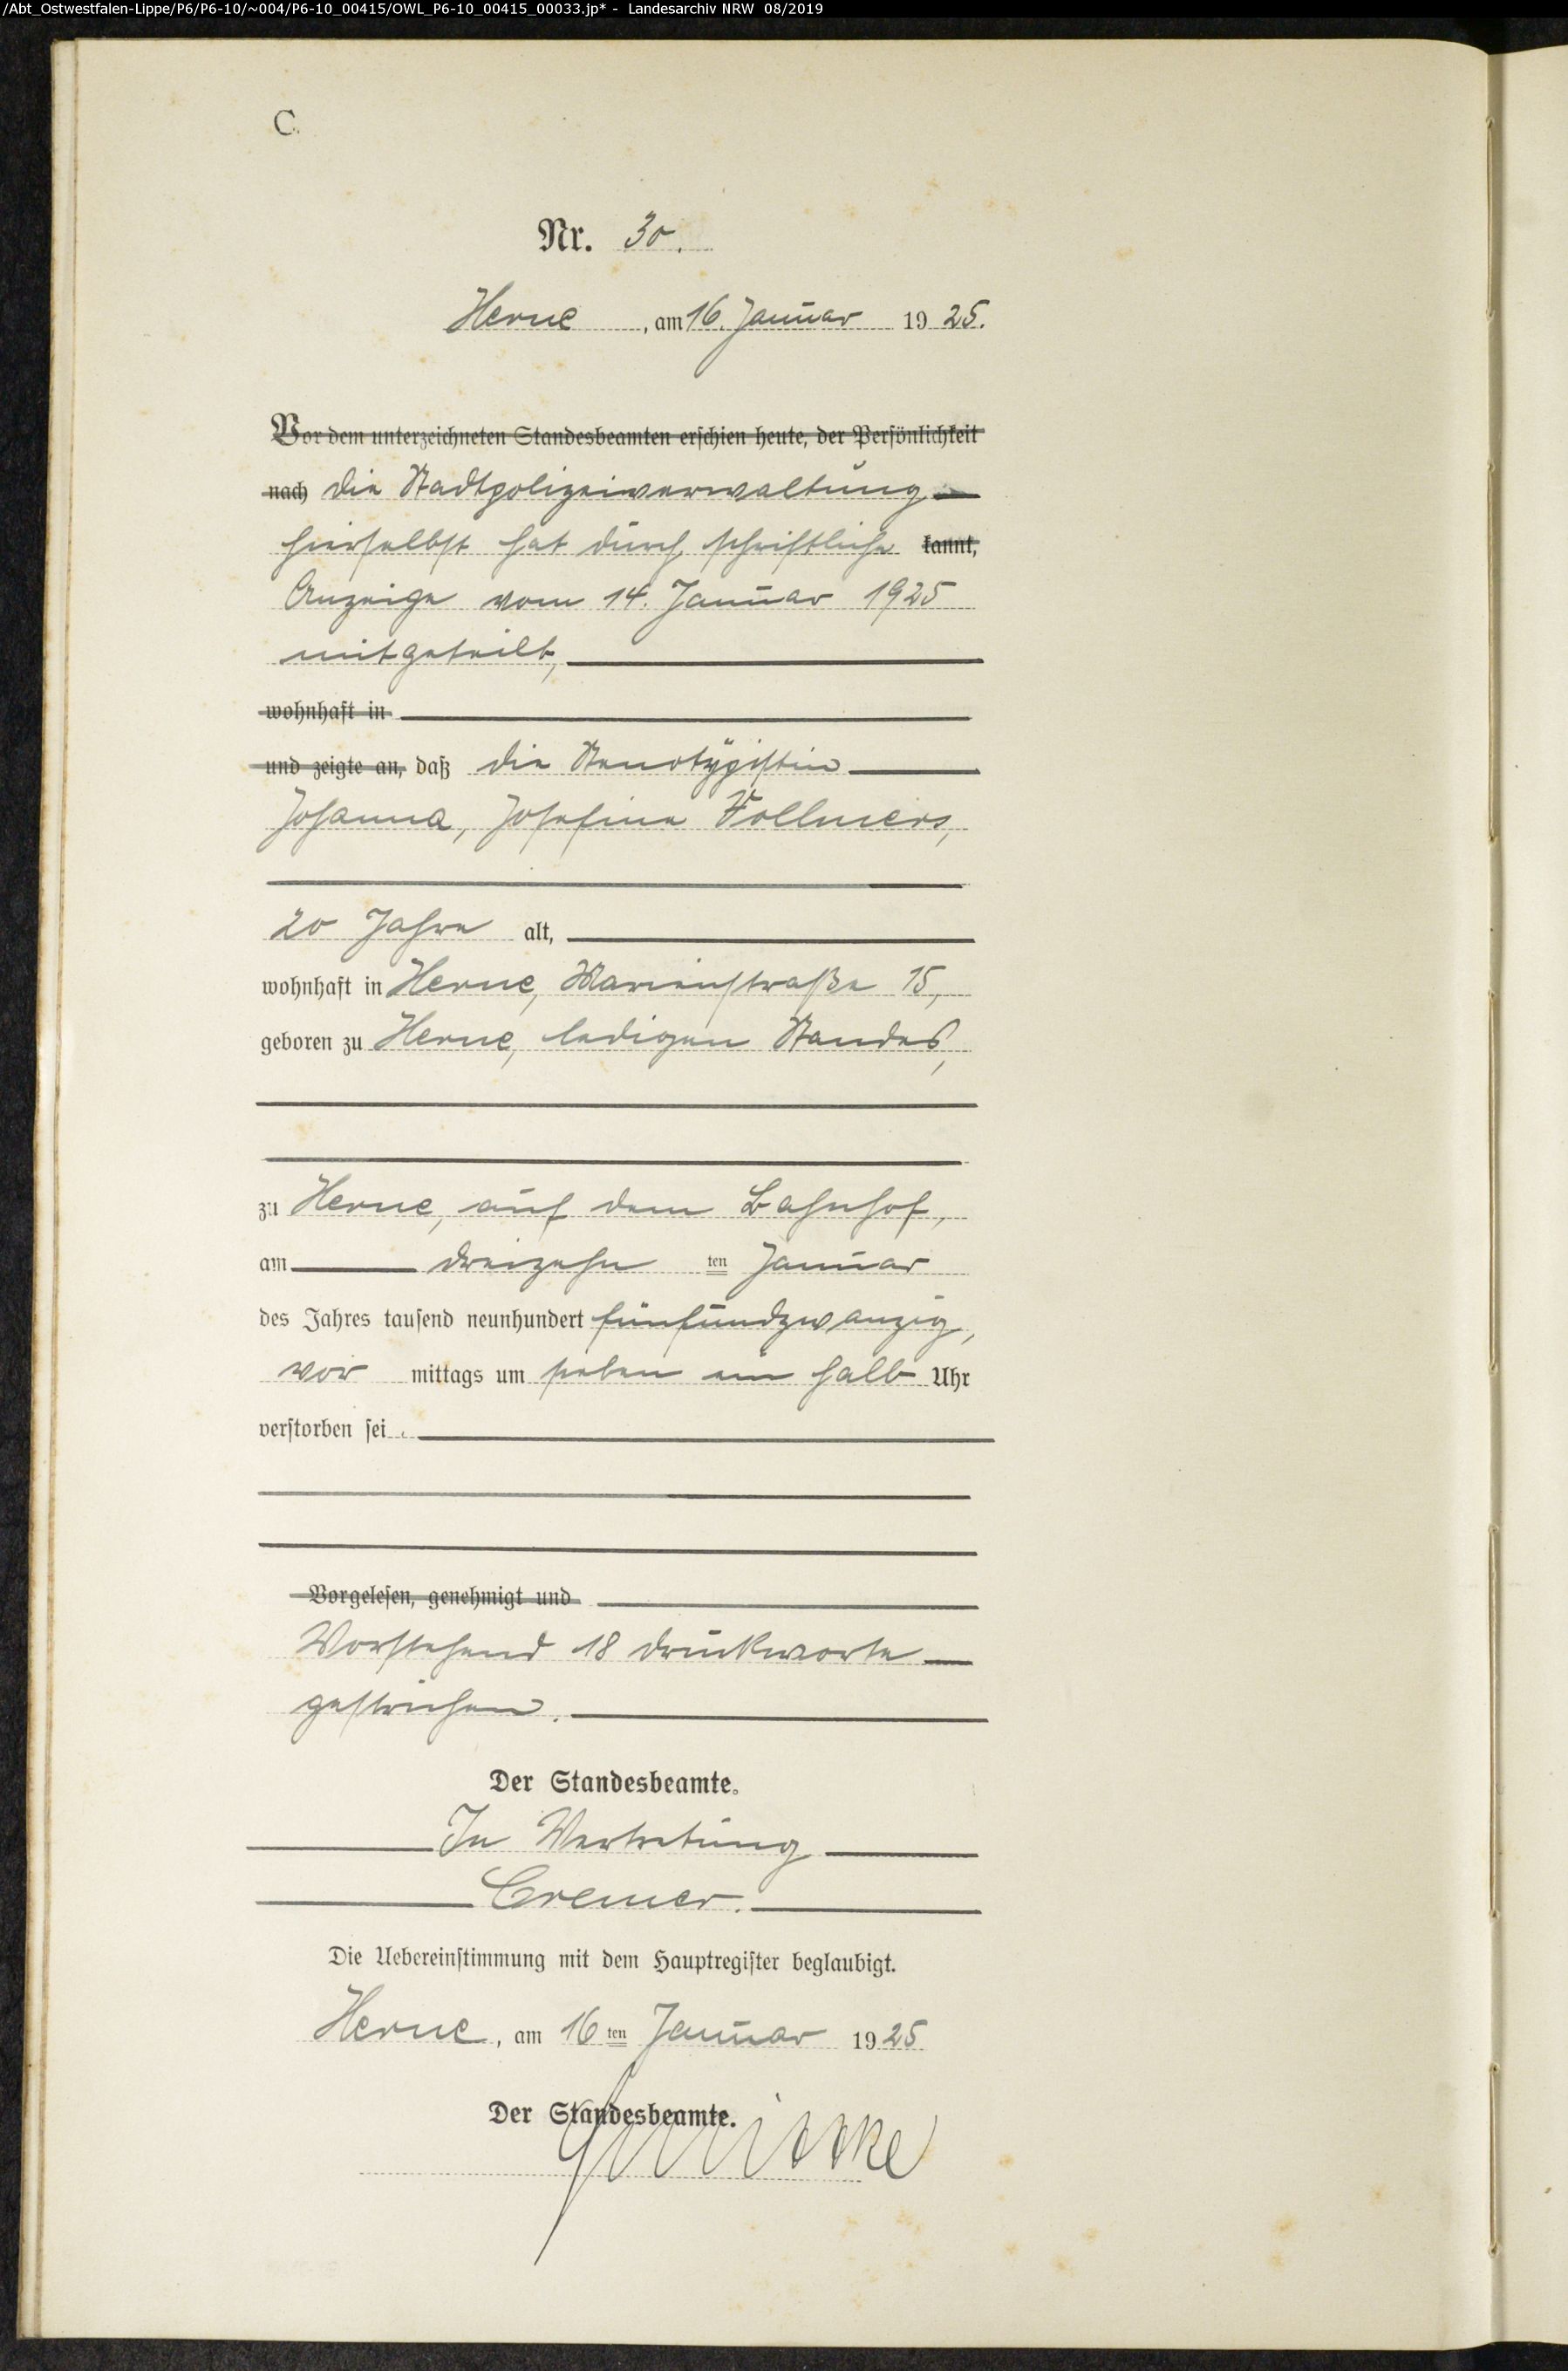 /Abt_Ostwestfalen-Lippe/P6/P6-10/~004/P6-10_00415/OWL_P6-10_00415_00033.jp* - Landesarchiv NRW 08/2019
C.
Nr. 30.
Herne, am 16. Januar 1925.
Vor dem unterzeichneten Standesbeamten erschien heute, der Persönlichkeit
nach die Stadtpolizeiverwaltung
hierselbst hat durch schriftliche kannt,
Anzeige vom 14. Januar 1925
mitgeteilt,
wohnhaft in
und zeigte an, daß die Stenotÿpistin
Johanna, Josefine Vollmers,
20 Jahre alt,
wohnhaft in Herne, Marienstraße 15,
geboren zu Herne, ledigen Standes,
zu Herne, auf dem Bahnhof,
am dreizehn ten Januar
des Jahres tausend neunhundert fünfundzwanzig,
vor mittags um sieben ein halb Uhr
verstorben sei.
Vorgelesen, genehmigt und
Vorstehend 18 Druckworte
gestrichen.
Der Standesbeamte.
In Vertretung
Cremer.
Die Uebereinstimmung mit dem Hauptregister beglaubigt.
Herne, am 16ten Januar 1925
Der Standesbeamte.